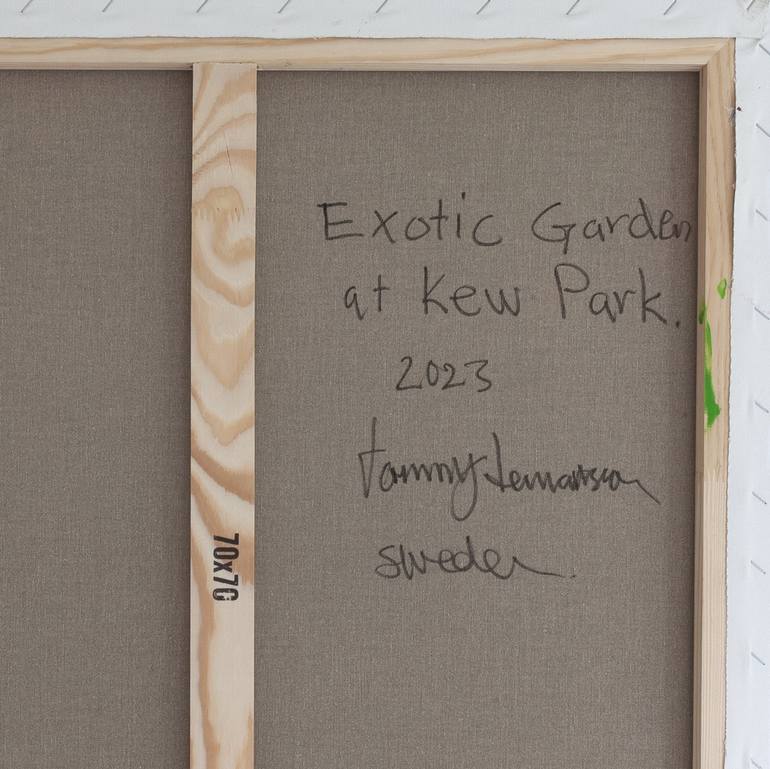 Exotic Garden
at Kew Park.
2023
tommy lennartsson
sweden.
70x70